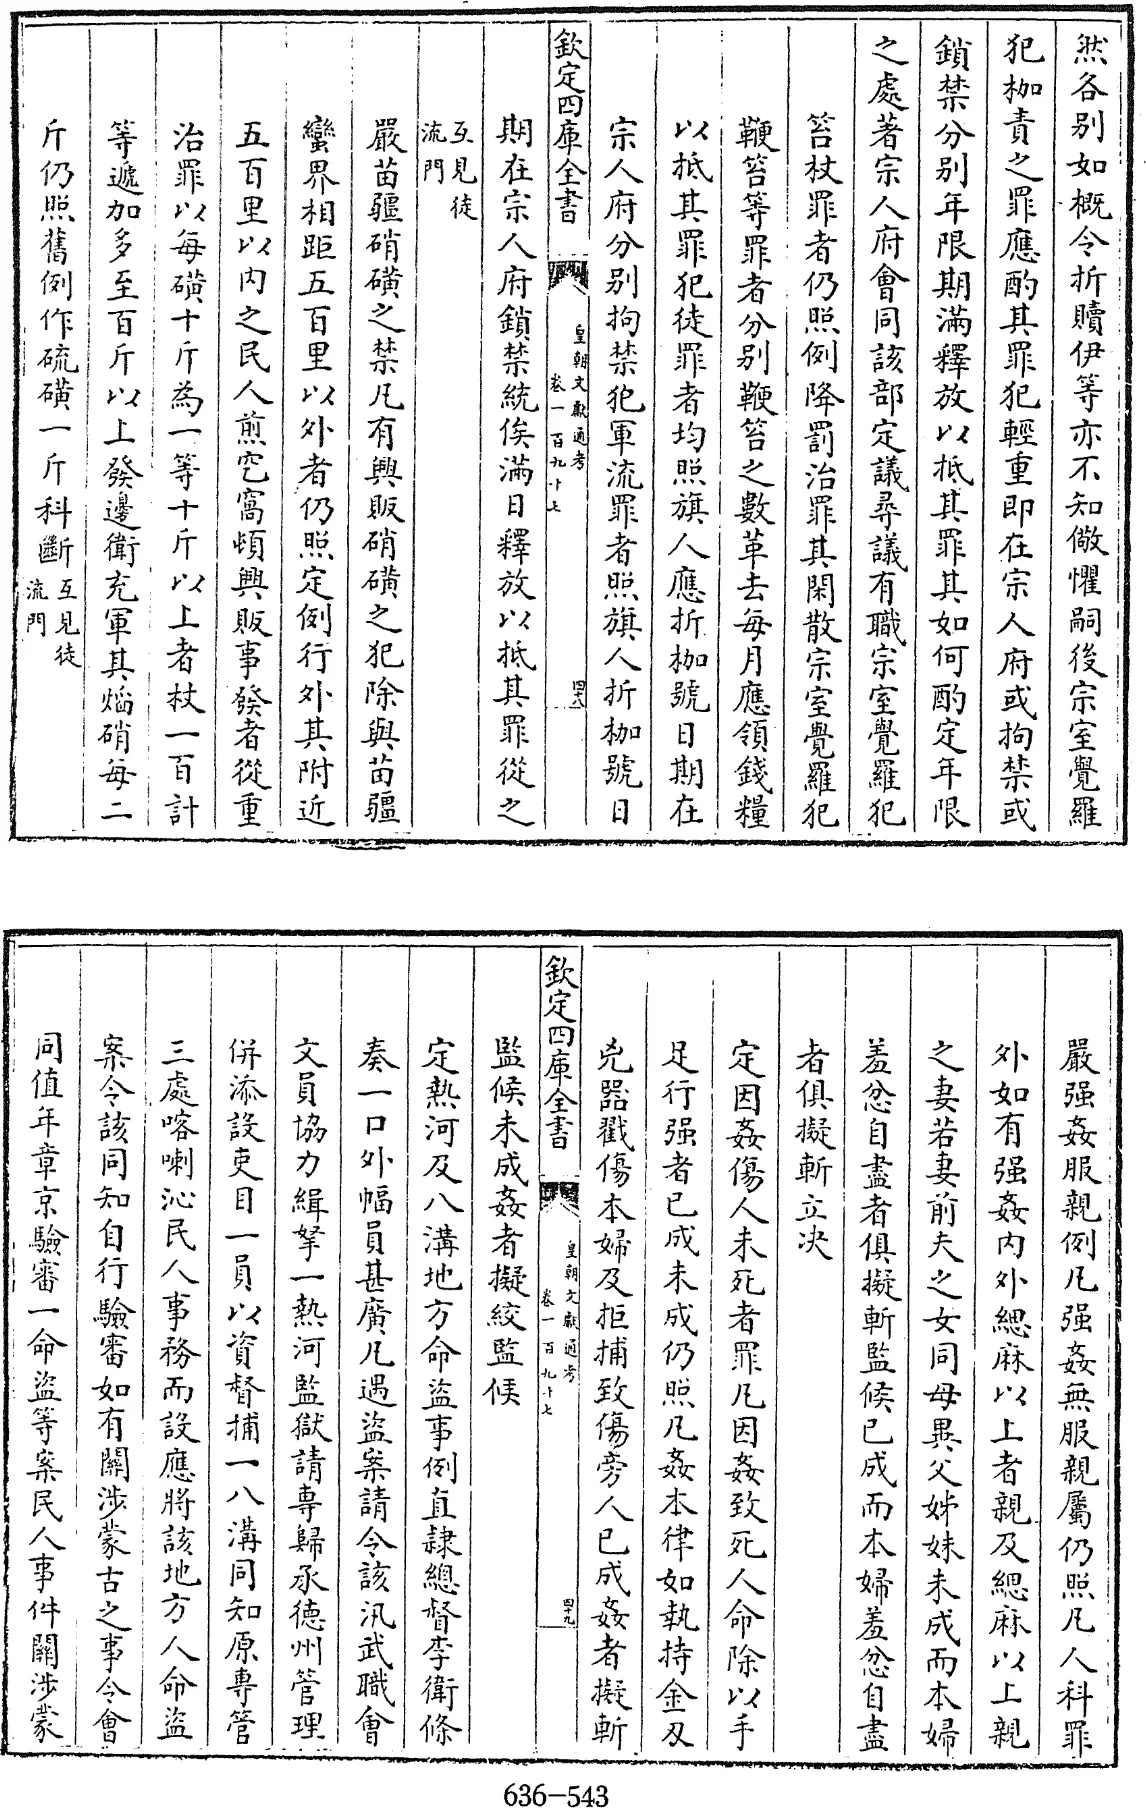 然各别如概令折贖伊等亦不知儆懼嗣後宗室覺羅
犯枷責之罪應酌其罪犯輕重即在宗人府或拘禁或
鎖禁分别年限期滿釋放以抵其罪其如何酌定年限
之處著宗人府會同該部定議尋議有職宗室覺羅犯
笞杖罪者仍照例降罰治罪其閑散宗室覺羅犯
鞭笞等罪者分别鞭笞之數革去每月應領錢糧
以抵其罪犯徒罪者均照旗人應折枷號日期在
宗人府分别拘禁犯軍流罪者照旗人折枷號日
欽定四庫全書
皇朝文獻通考
卷一百九十七
四十八
期在宗人府鎖禁統俟滿日釋放以抵其罪從之
互見徒
流門
嚴苗疆硝磺之禁凡有興販硝磺之犯除與苗疆
蠻界相距五百里以外者仍照定例行外其附近
五百里以内之民人煎挖窩頓興販事發者從重
治罪以每磺十斤為一等十斤以上者杖一百計
等遞加多至百斤以上發邊衛充軍其焰硝每二
斤仍照舊例作硫磺一斤科斷
互見徒
流門
嚴强姦服親例凡强姦無服親屬仍照凡人科罪
外如有强姦内外緦麻以上者親及緦麻以上親
之妻若妻前夫之女同母異父姊妹未成而本婦
羞忿自盡者俱擬斬監候已成而本婦羞忿自盡
者俱擬斬立决
定因姦傷人未死者罪凡因姦致死人命除以手
足行强者已成未成仍照凡姦本律如執持金刃
兇器戳傷本婦及拒捕致傷旁人已成姦者擬斬
欽定四庫全書
皇朝文獻通考
卷一百九十七
四十九
監候未成姦者擬絞監候
定熱河及八溝地方命盜事例直隸總督李衛條
奏一口外幅員甚廣凡遇盜案請令該汛武職會
文員協力緝拏一熱河監獄請專歸承德州管理
併添設吏目一員以資督捕一八溝同知原專管
三處喀喇沁民人事務而設應將該地方人命盜
案令該同知自行驗審如有關涉蒙古之事令會
同值年章京驗審一命盜等案民人事件關涉蒙
636-543